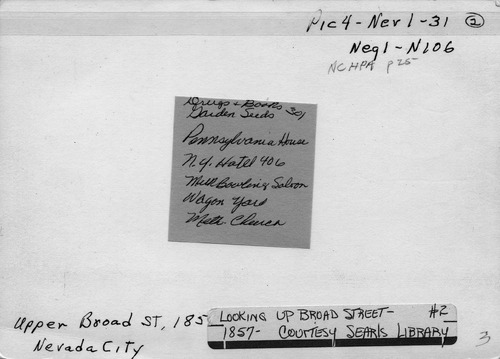 Pic 4 - Nev 1 - 31 2
Neg 1 - N106
NCHPA p 25
Drugs + Books 301
Garden Seeds
Pennsylvania House
N.Y. Hotel 406
Mill Bowling Saloon
Wagon Yard
Meth. Church
Upper Broad St, 185
Nevada City
LOOKING UP BROAD STREET- #2
1857- COURTESY SEARLS LIBRARY
3